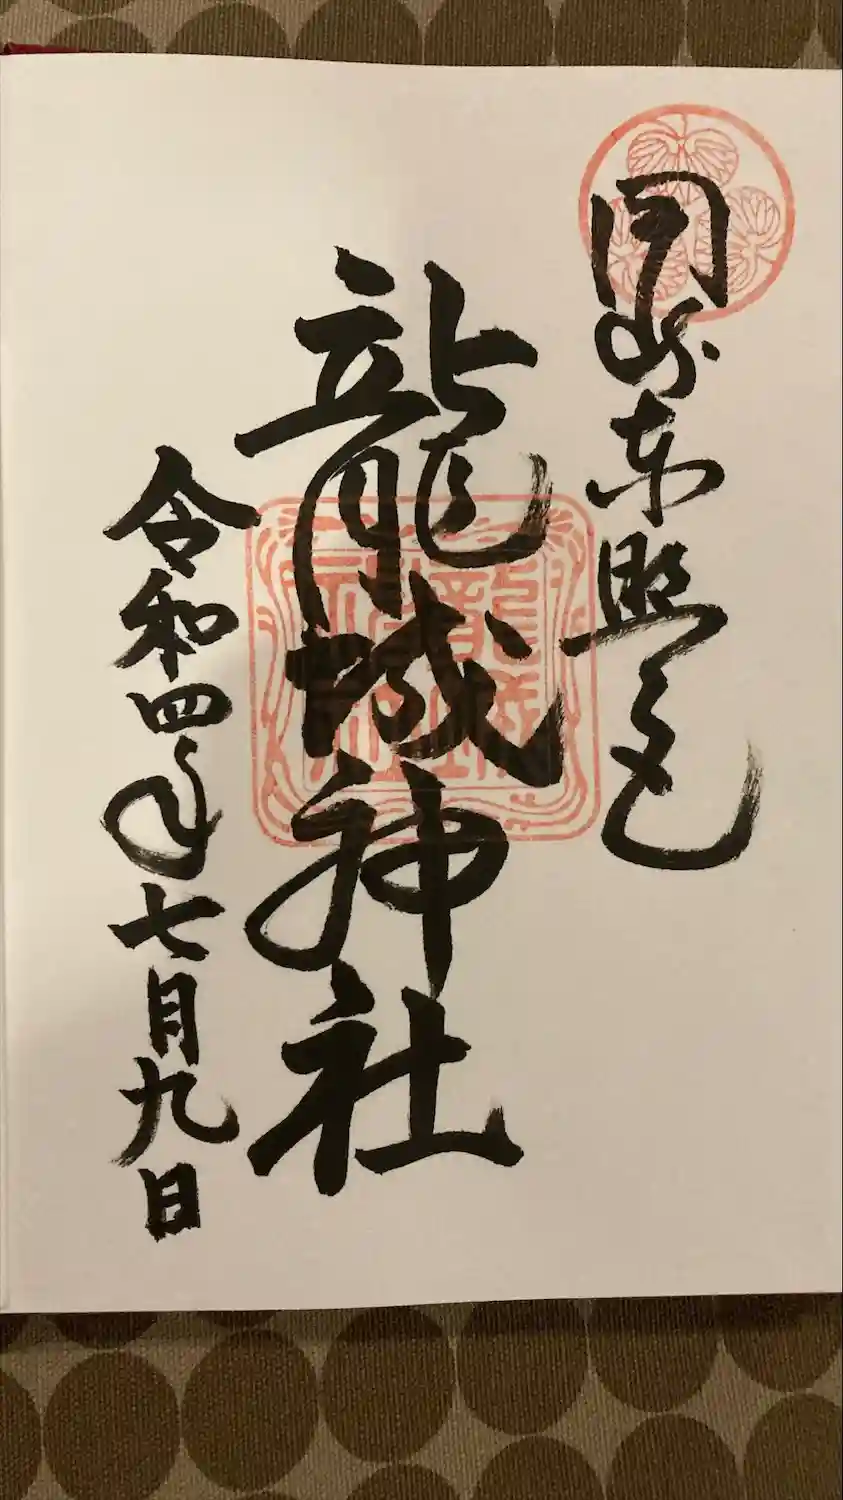 岡崎東照宮
龍城神社
令和四年七月九日
龍城神社